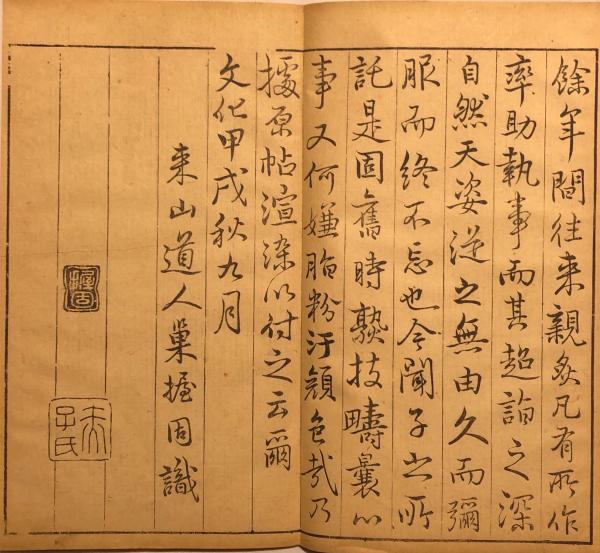 餘年間往来親炙凡有所作
率助執事而其超詣之深
自然天姿逆之無由久而彌
服而終不忘也今聞子之所
託是固舊時褻技疇曩以
事又何嫌脂粉汙顔色哉乃
據原帖渲染以付之云爾
文化甲戌秋九月
来山道人巣握固識
握固
子氏